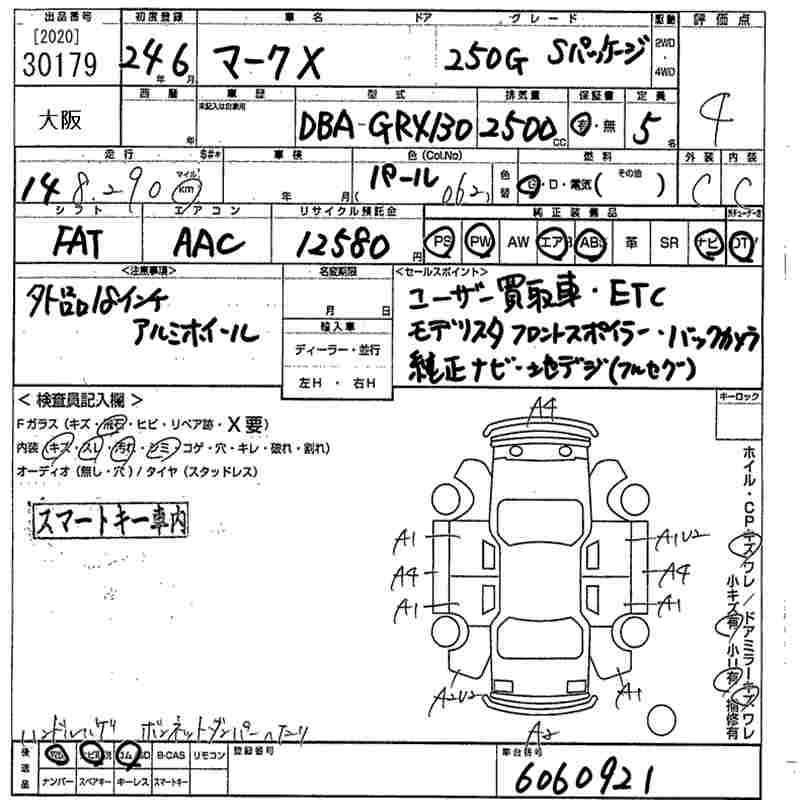 出品番号 初度登録 車名 ドア グレード 駆動 評価点
[2020]
30179 24年6月 マークX 250G Sパッケージ 2WD・4WD 4
大阪 西暦 年 車歴 未記入は自家用 型式 DBA-GRX130 排気量 2500cc 保証書 有・無 定員 5名
走行 148,290 マイル km 車検 年 月 色(Col.No) パール (062) 色替 燃料 G・D・電気( その他 ) 外装 C 内装 C
シフト エアコン リサイクル預託金 純正装備品
FAT AAC 12580円 PS PW AW エアB ABS 革 SR ナビ TV
<注意事項> 名変期限 <セールスポイント>
外品18インチ
アルミホイール
月 日
輸入車
ディーラー・並行
左H・右H
ユーザー買取車・ETC
モデリスタフロントスポイラー・バックカメラ
純正ナビ・地デジ(フルセグ)
<検査員記入欄> キーロック
Fガラス(キズ・飛石・ヒビ・リペア跡・X要)
内装(キズ・スレ・汚れ・シミ・コゲ・穴・キレ・破れ・割れ)
オーディオ(無し・穴)/タイヤ(スタッドレス)
スマートキー車内
A4
A1 A1U2
A4 A4
A1 A1
A2U2 A1
A2
ホイル・CPキズワレ/ドアミラーキズワレ
小キズ有 小U有 補修有
ハンドルハゲ ボンネットダンパーヘタリ
後送品 ナビROM リモコン B-CAS リモコン 登録番号 車台番号
ナンバー スペアキー キーレス スマートキー
6060921